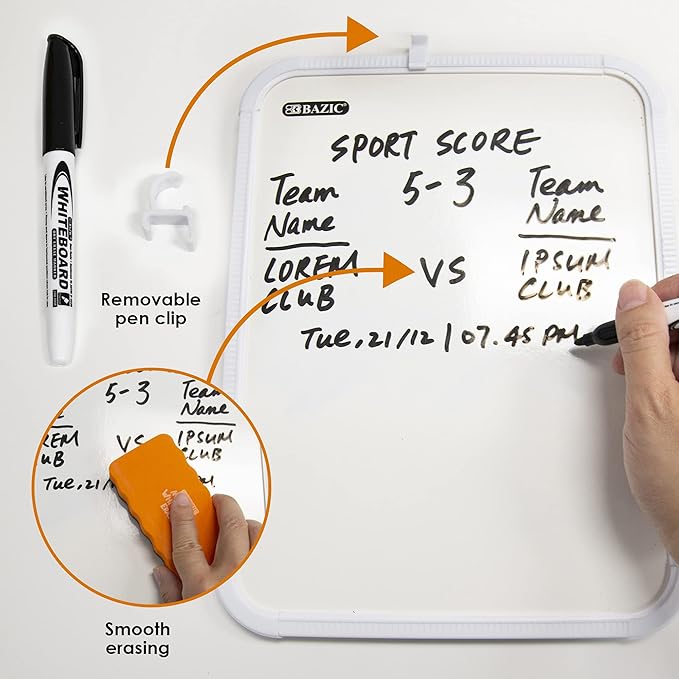 BAZIC
SPORT SCORE
Team Name
5-3
Team Name
LOREM CLUB
VS
IPSUM CLUB
Tue, 21/12 | 07.45 PM
WHITEBOARD
Removable
pen clip
5-3
Team
Name
REM
UB
VS
IPSUM
CLUB
Tue, 21/
Smooth
erasing